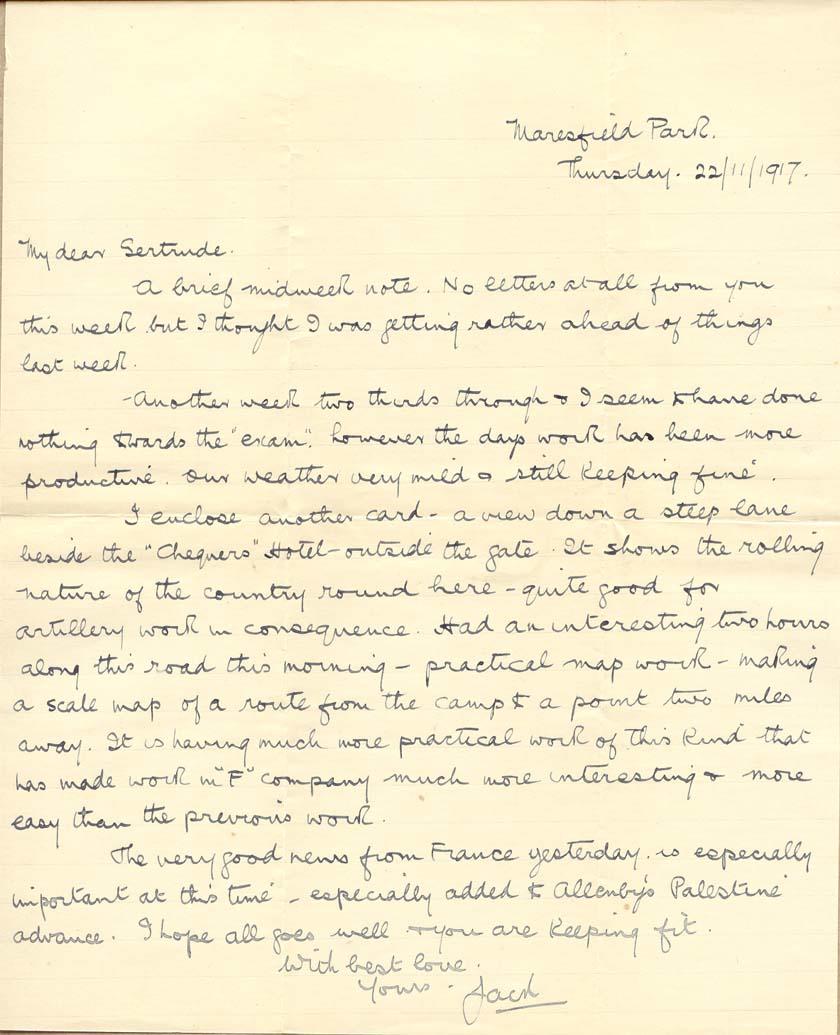 Maresfield Park.
Thursday. 22/11/1917.
My dear Gertrude.
A brief midweek note. No letters at all from you
this week but I thought I was getting rather ahead of things
last week.
Another week two thirds through & I seem to have done
nothing towards the "exam". however the days work has been more
productive. Our weather very mild & still keeping fine.
I enclose another card - a view down a steep lane
beside the "Chequers" Hotel - outside the gate. It shows the rolling
nature of the country round here - quite good for
artillery work in consequence. Had an interesting two hours
along this road this morning - practical map work - making
a scale map of a route from the camp to a point two miles
away. It is having much more practical work of this kind that
has made work in "F" company much more interesting & more
easy than the previous work.
The very good news from France yesterday. is especially
important at this time - especially added to Allenby's Palestine
advance. I hope all goes well & you are keeping fit.
With best love.
Yours. Jack